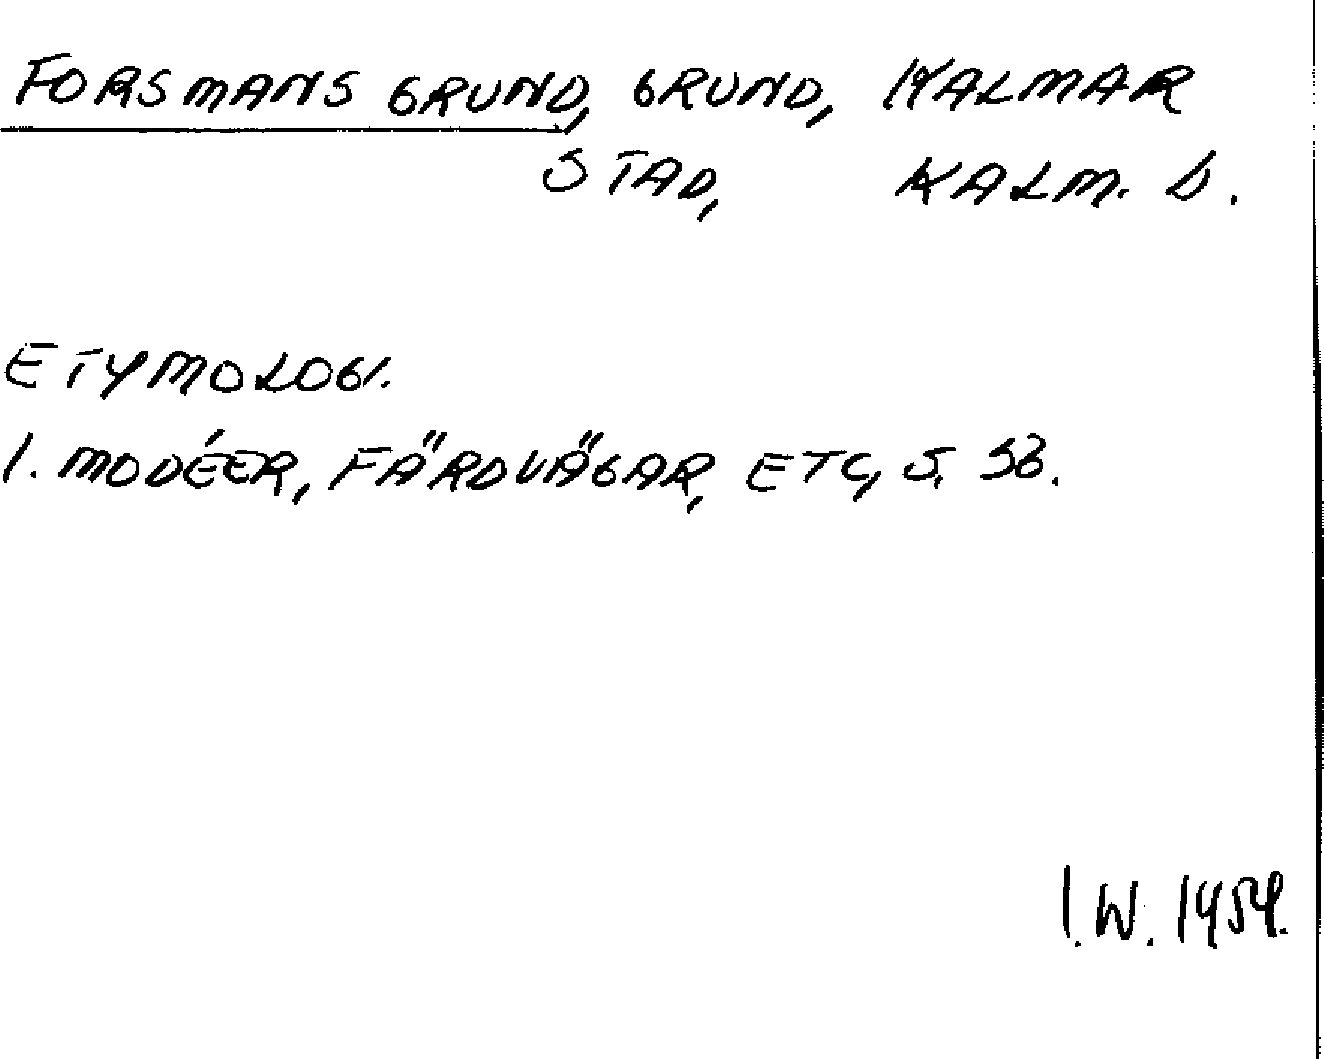 FORSMANS GRUND, GRUND, KALMAR
STAD, KALM. L.
ETYMOLOGI.
I. MODÉER, FÄRDVÄGAR, ETC, S.
I.W. 1954.